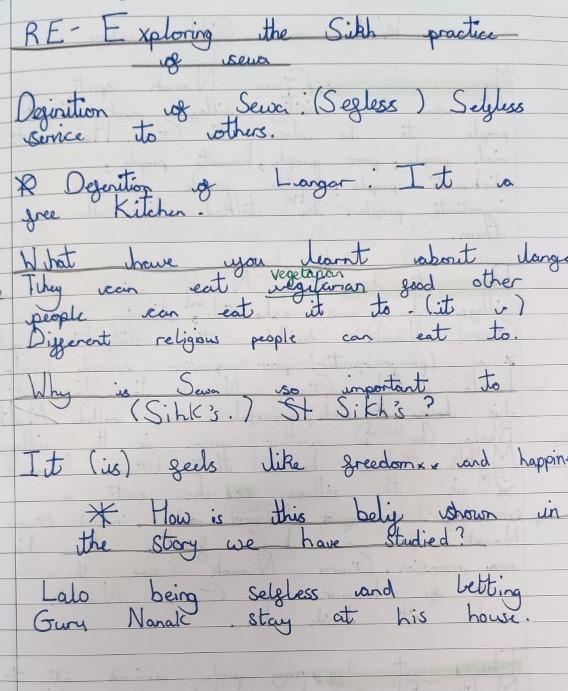 RE- Exploring the Sikh practice
of sewa
Deginition of Sewa: (Segless) Selgless
service to others.
* Degenition of Langar: It a
free Kitchen.
What have you learnt about lang
They can eat vegetapan vegitarian good other
people can eat it to. (it is)
Different religious people can eat to.
Why is Sewa so important to
(Sihk's.) St Sikh's?
It (is) feels like freedom xx and happin
* How is this belig shown in
the story we have studied?
Lalo being selgless and letting
Guru Nanak stay at his house.